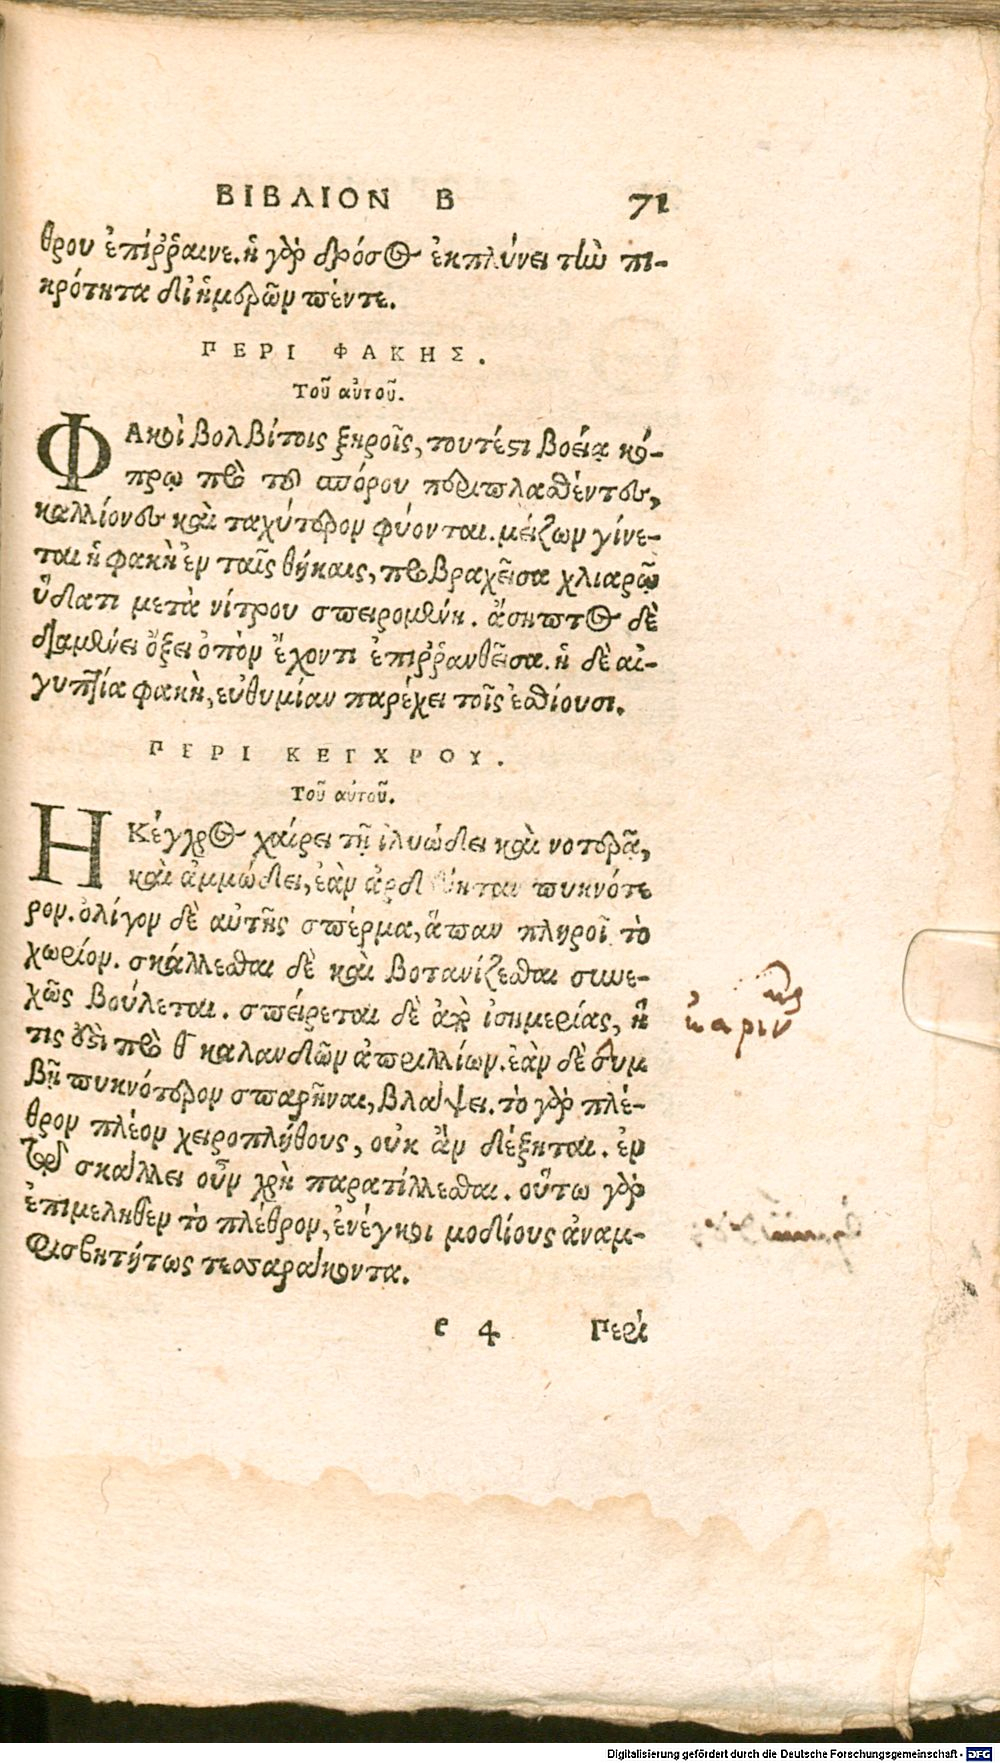 ΒΙΒΛΙΟΝ Β 71
θρου ἐπίῤῥαινε. ἡ γὰρ δρόσος ἐκπλύνει τὴν πι-
κρότητα δι' ἡμερῶν πέντε.
ΠΕΡΙ ΦΑΚΗΣ.
Τοῦ αὐτοῦ.
ΦΑκοὶ βολβίτοις ξηροῖς, τουτέστι βοείᾳ κό-
πρῳ πρὸ τοῦ σπόρου περιπλασθέντες,
καλλίονες καὶ ταχύτερον φύονται. μείζων γίνε-
ται ἡ φακὴ ἐν ταῖς θήκαις, προβραχεῖσα χλιαρῷ
ὕδατι μετὰ νίτρου σπειρομένη. ἄσηπτος δὲ
διαμένει ὄξει ὀπὸν ἔχοντι ἐπιῤῥανθεῖσα. ἡ δὲ αἰ-
γυπτία φακὴ, εὐθυμίαν παρέχει τοῖς ἐσθίουσι.
ΠΕΡΙ ΚΕΓΧΡΟΥ.
Τοῦ αὐτοῦ.
Η Κέγχρος χαίρει τῇ ἰλυώδει καὶ νοτερᾷ,
καὶ ἀμμώδει, ἐὰν πυκνότε
ρον. ὀλίγον δὲ αὐτῆς σπέρμα, ἅπαν πληροῖ τὸ
χωρίον. σκάλλεσθαι δὲ καὶ βοτανίζεσθαι συνε-
χῶς βούλεται. σπείρεται δὲ ἀπὸ ἰσημερίας, ἥ
τις ἐστὶ πρὸ θ καλανδῶν ἀπριλλίων. ἐὰν δὲ συμ
βῇ πυκνότερον σπαρῆναι, βλάψει. τὸ γὰρ πλέ-
θρον πλέον χειροπλήθους, οὐκ ἂν δέξηται. ἐν
τῷ σκάλλει οὖν χρὴ παρατίλλεσθαι. οὕτω γὰρ
ἐπιμεληθὲν τὸ πλέθρον, ἐνέγκοι μοδίους ἀναμ-
φισβητήτως τεσσαράκοντα.
e 4 Περὶ
Digitalisierung gefördert durch die Deutsche Forschungsgemeinschaft - DFG